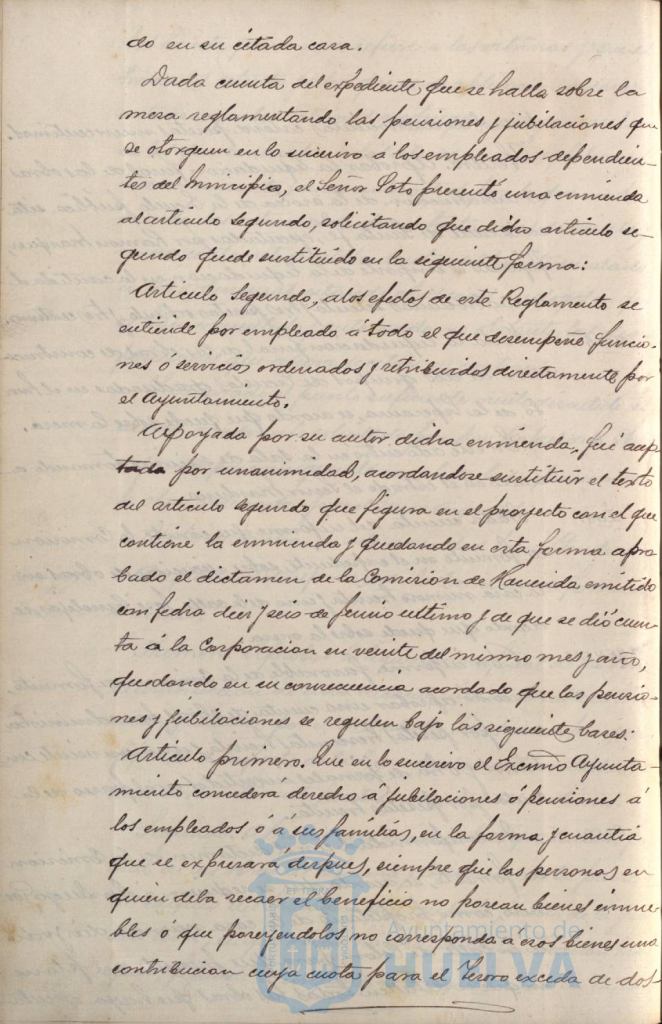 do en su citada casa.
Dada cuenta del expediente que se halla sobre la
mesa reglamentando las pensiones y jubilaciones que
se otorguen en lo sucesivo á los empleados dependien-
tes del Municipio, el Señor Soto presentó una enmienda
al articulo segundo, solicitando que dicho articulo se-
gundo quede sustituido en la siguiente forma:
Articulo segundo, a los efectos de este Reglamento se
entiende por empleado á todo el que desempeñe funcio-
nes ó servicios ordenados y retribuidos directamente por
el Ayuntamiento.
Apoyada por su autor dicha enmienda, fué acep-
tada por unanimidad, acordandose sustituir el texto
del articulo segundo que figura en el proyecto con el que
contiene la enmienda y quedando en esta forma apro-
bado el dictamen de la Comision de Hacienda emitido
con fecha diez y seis de Junio ultimo y de que se dió cuen-
ta á la Corporacion en veinte del mismo mes y año,
quedando en su consecuencia acordado que las pensio-
nes y jubilaciones se regulen bajo las siguiente bases:
Articulo primero. Que en lo sucesivo el Excmo Ayunta-
miento concederá derecho á jubilaciones ó pensiones á
los empleados ó á sus familias, en la forma y cuantia
que se expresará despues, siempre que las personas en
quien deba recaer el beneficio no posean bienes inmue-
bles ó que poseyendolos no corresponda á esos bienes una
contribucion cuya cuota para el Tesoro exceda de dos-
Ayuntamiento de
HUELVA